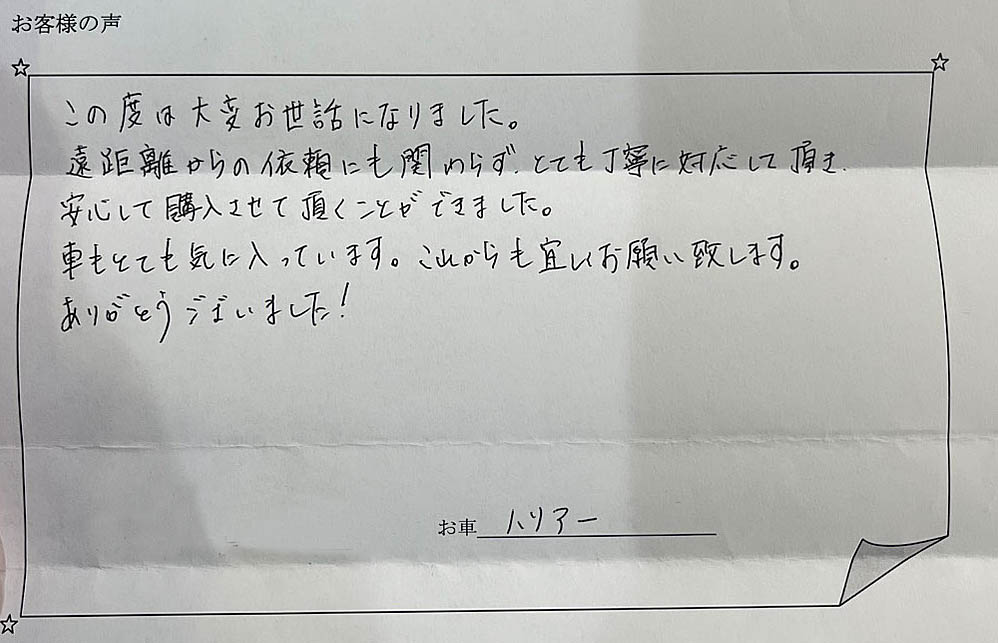 お客様の声
この度は大変お世話になりました。
遠距離からの依頼にも関わらず、とても丁寧に対応して頂き、
安心して購入させて頂くことができました。
車もとても気に入っています。これからも宜しくお願い致します。
ありがとうございました!
お車 ハリアー